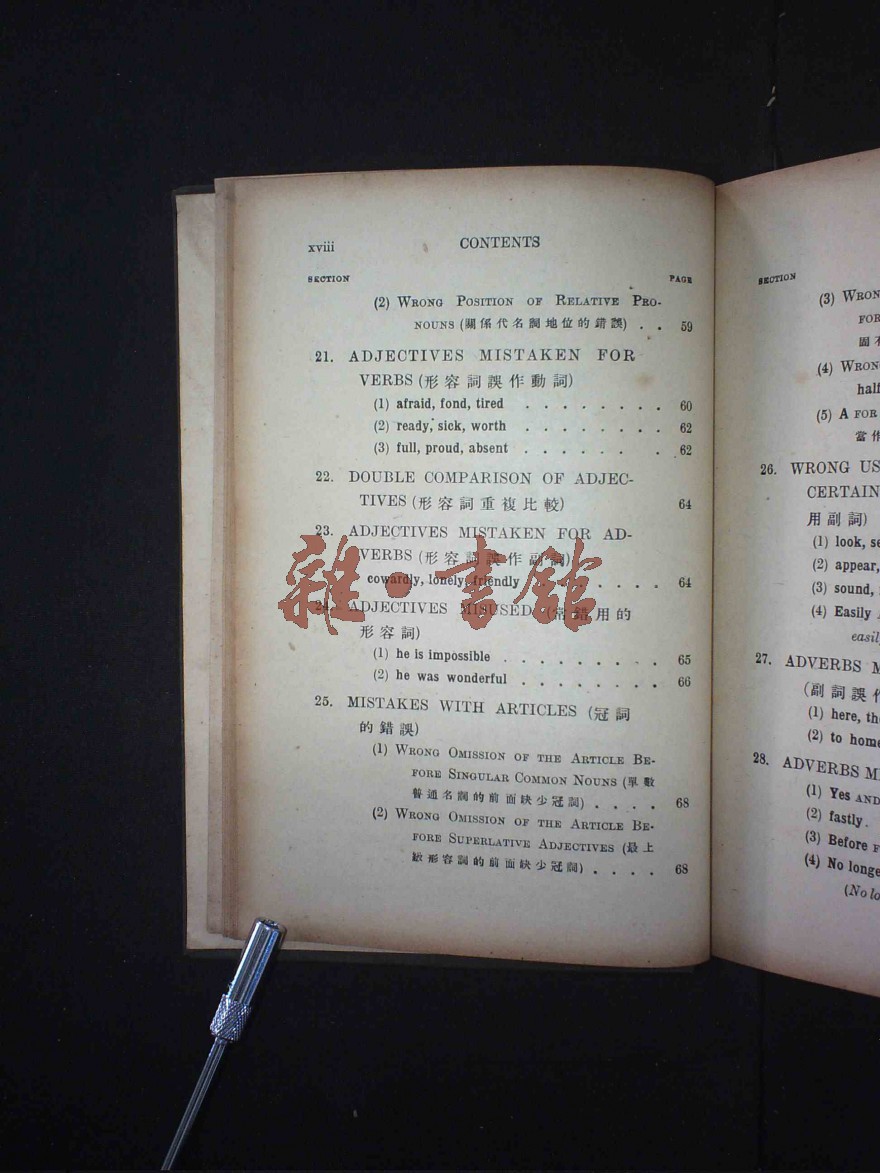 xviii CONTENTS
SECTION PAGE
(2) WRONG POSITION OF RELATIVE PRO-
NOUNS (關係代名詞地位的錯誤) . . 59
21. ADJECTIVES MISTAKEN FOR
VERBS (形容詞誤作動詞)
(1) afraid, fond, tired . . . . . . . . 60
(2) ready, sick, worth . . . . . . . . 62
(3) full, proud, absent . . . . . . . 62
22. DOUBLE COMPARISON OF ADJEC-
TIVES (形容詞重複比較) 64
23. ADJECTIVES MISTAKEN FOR AD-
VERBS (形容詞誤作副詞)
cowardly, lonely, friendly . . . . . . . . 64
24. ADJECTIVES MISUSED (常錯用的
形容詞)
(1) he is impossible . . . . . . . . . 65
(2) he was wonderful . . . . . . . . 66
25. MISTAKES WITH ARTICLES (冠詞
的錯誤)
(1) WRONG OMISSION OF THE ARTICLE BE-
FORE SINGULAR COMMON NOUNS (單數
普通名詞的前面缺少冠詞) . . . . 68
(2) WRONG OMISSION OF THE ARTICLE BE-
FORE SUPERLATIVE ADJECTIVES (最上
級形容詞的前面缺少冠詞) . . . . 68
雜·書館
SECTION
(3) WRON
FOR
固有
(4) WRON
half
(5) A FOR
當作
26. WRONG US
CERTAIN
用副詞)
(1) look, se
(2) appear,
(3) sound,
(4) Easily
easil
27. ADVERBS M
(副詞誤作
(1) here, th
(2) to home
28. ADVERBS MI
(1) Yes AND
(2) fastly .
(3) Before F
(4) No longe
(No lo